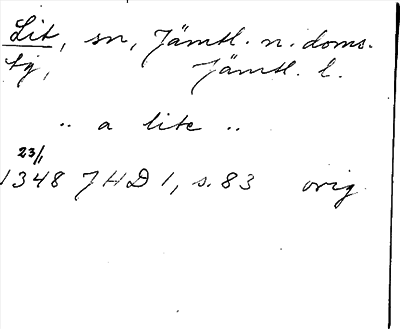 Lit, sn, Jämtl. n. doms.
tg, Jämtl. l.
.. a lite ..
23/1
1348 JHD 1, s. 83 orig.